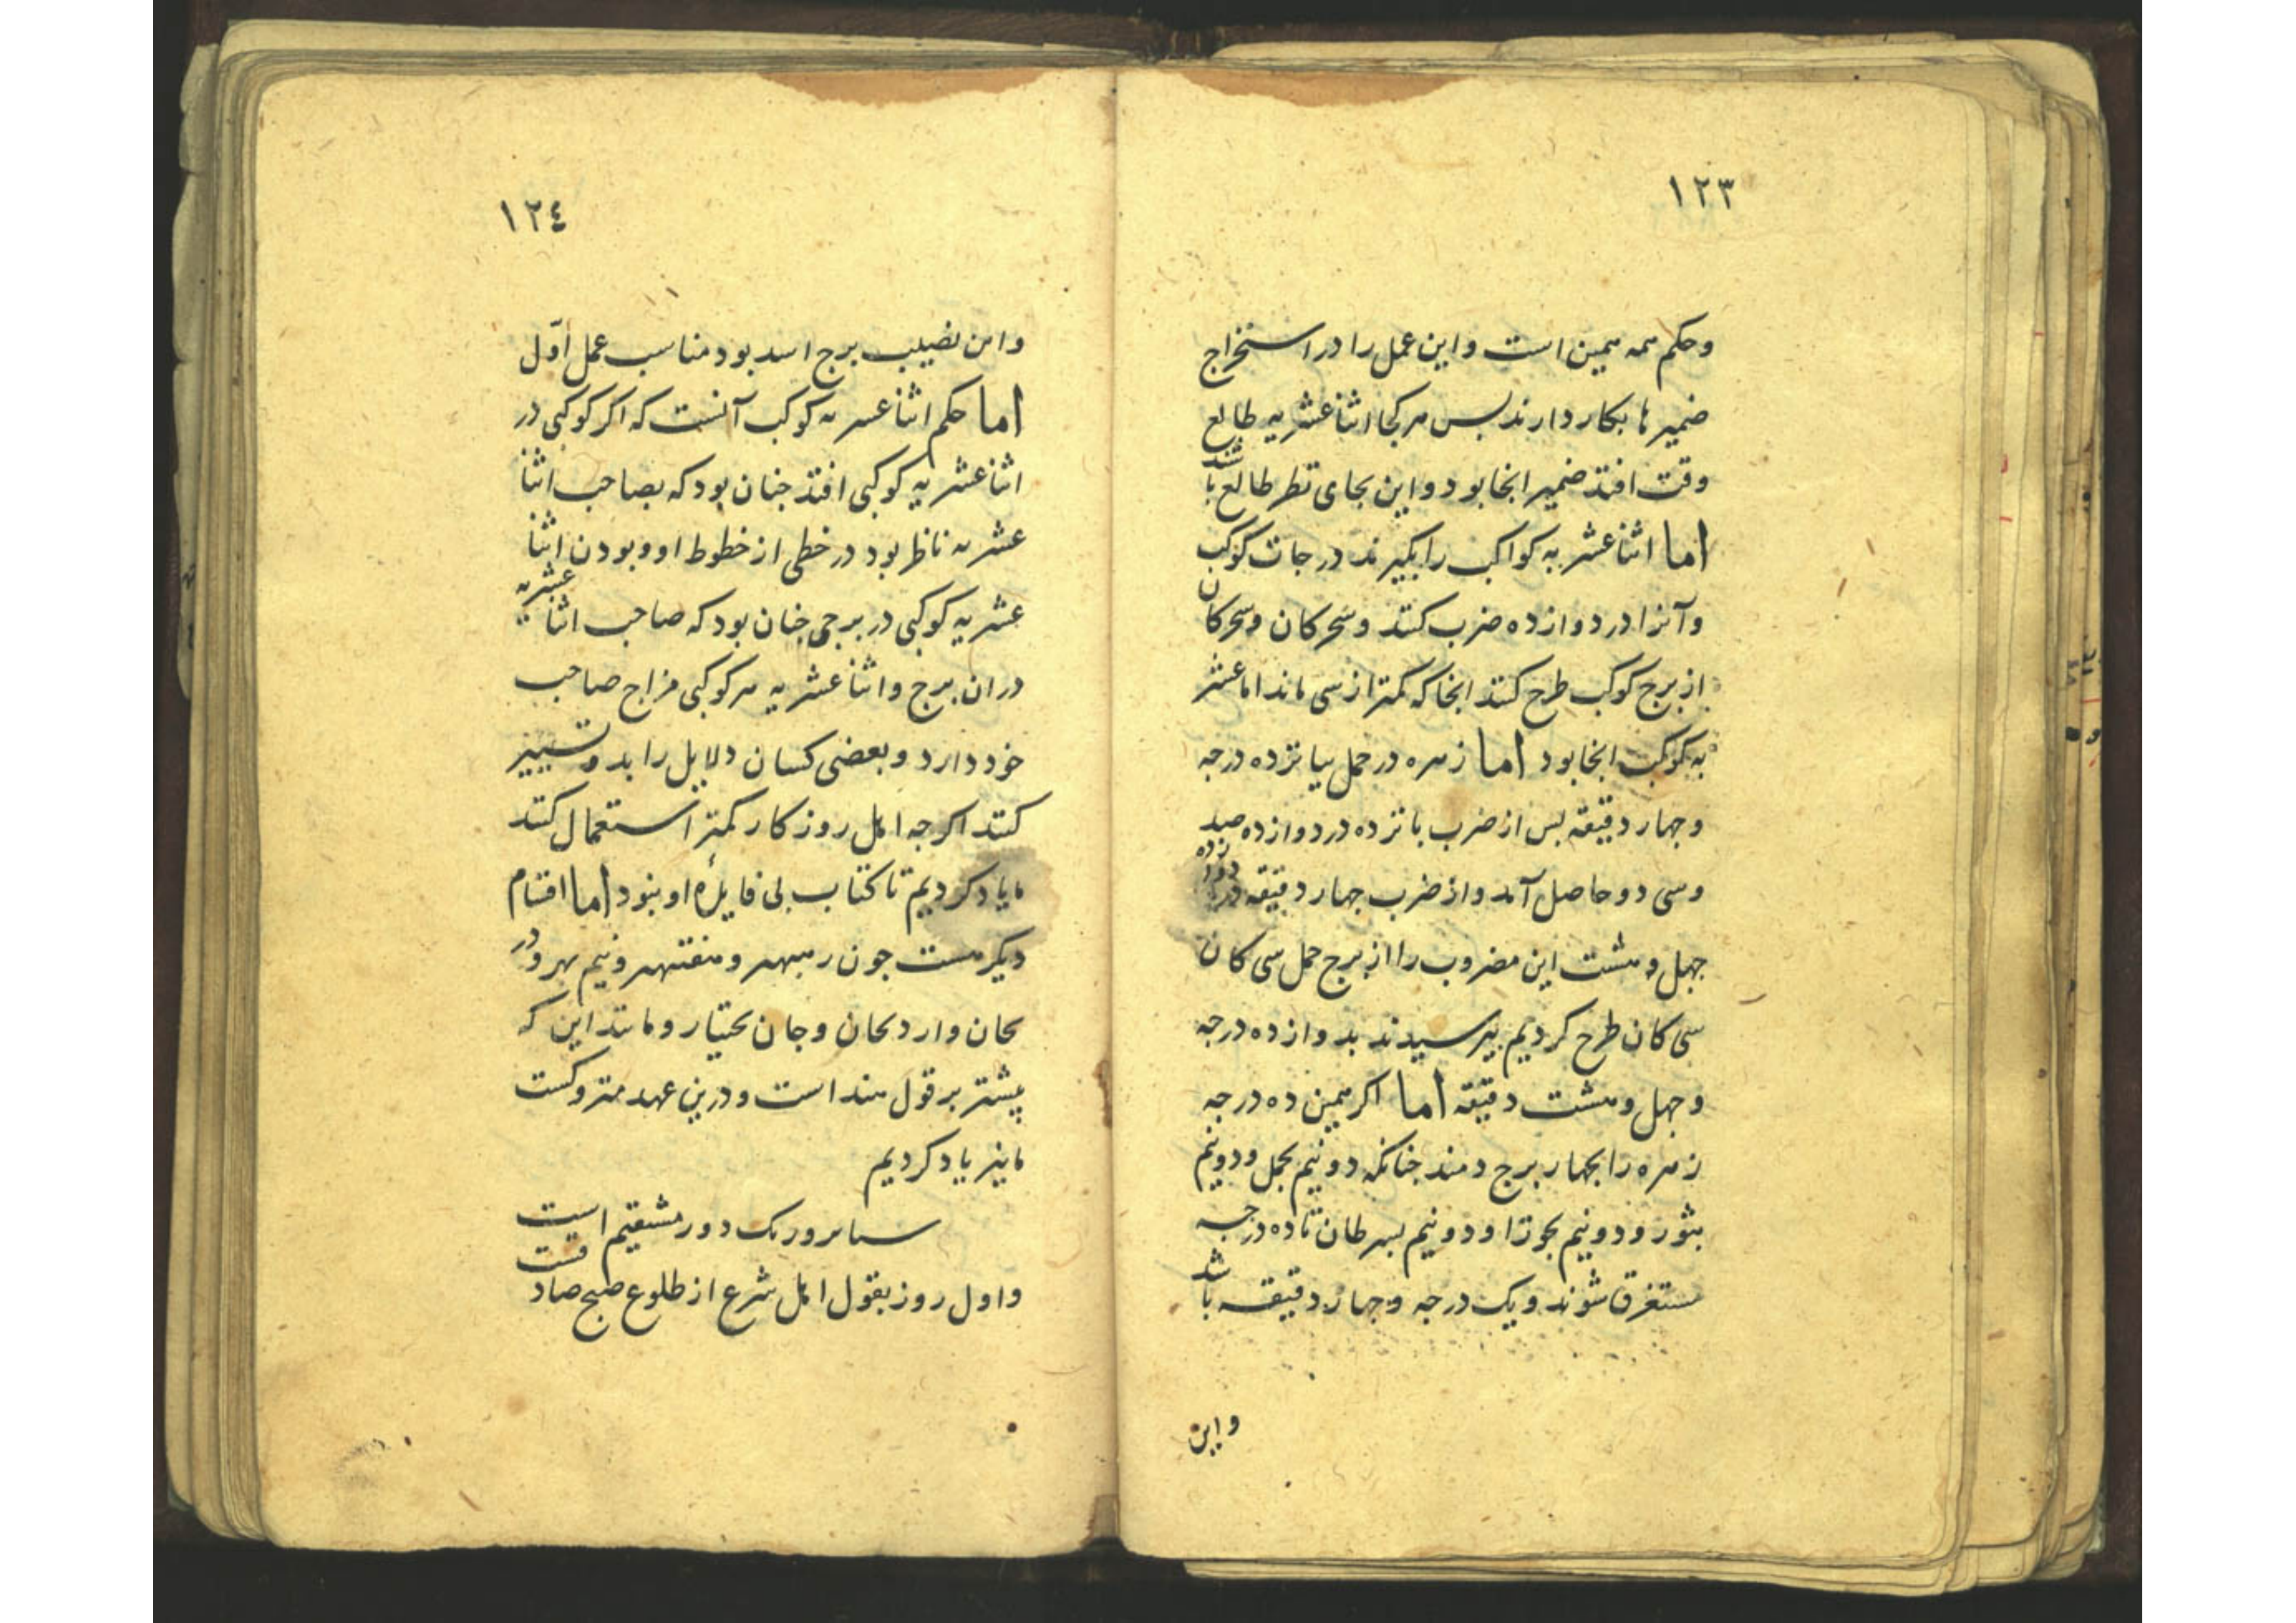 ١٢٣
وحکم همه همین است واین عمل را در استخراج
ضمیر ها بکار دارند بس هر کجا اثنا عشریه طالع
وقت افتد ضمیر انجا بود و این بجای نظر طالع باشد
اما اثنا عشریه کواکب را بگیرند درجات کوکب
و آنرا در دوازده ضرب کنند و
از برج کوکب طرح کنند انجا که کمتر از سی ماند اما عشر
به کوکب انجا بود اما زهره در حمل بپانزده درجه
وجهار دقیقه بس از ضرب بانزده در دوازده صد
وسی دو حاصل آمد و از ضرب جهار دقیقه در دوازده
جهل و هشت این مضروب را از برج حمل سی کان
سی کان طرح کردیم برسیدند بدوازده درجه
وجهل وهشت دقیقه اما اکر همین ده درجه
زهره را بجهار برج دهند جنانکه دونیم بحمل ودونیم
بثور ودونیم بجوزا ودونیم بسرطان تا ده درجه
مستغرق شوند ویک درجه وجهار دقیقه باشد
واین
١٢٤
واین نصیب برج اسد بود مناسب عمل اوّل
اما حکم اثنا عشریه کوکب آنست که اکر کوکبی در
اثنا عشریه کوکبی افتد جنان بود که بصاحب اثنا
عشریه ناظر بود در خطی از خطوط او وبودن اثنا
عشریه کوکبی در برجی جنان بود که صاحب اثنا عشریه
دران برج واثنا عشریه هر کوکبی مزاج صاحب
خود دارد وبعضی کسان دلایل را بدو تسییر
کنند اکرجه اهل روزکار کمتر استعمال کنند
ما یاد کردیم تا کتاب بی فایدهٔ او نبود اما اقسام
دیکر هست جون ونیم بهر ودر
وجان بختیار ومانند این که
پیشتر بر قول هند است ودرین عهد متروکست
ما نیز یاد کردیم
دور مستقیم است
واول روز بقول اهل شرع از طلوع صبح صادقست